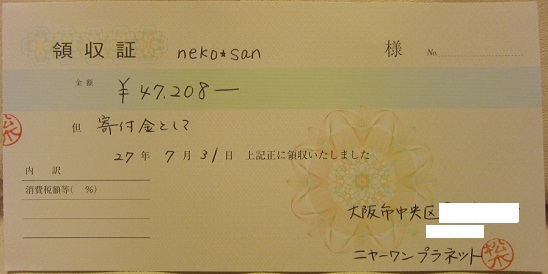 領収証 neko★san 様 No.
金額 ¥47.208―
但 寄付金として
27年7月31日 上記正に領収いたしました
内訳
消費税額等( %)
大阪市中央区
ニャーワンプラネット